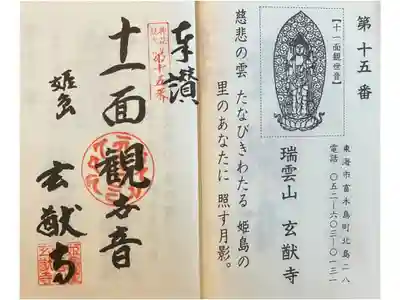 第十五番
【十一面観世音】
慈悲の雲 たなびきわたる 姫島の
里のあなたに 照す月影。
瑞雲山 玄猷寺
東海市富木島町北島二八
電話 〇五二―六〇三―〇一三一
奉讃
第十五番
十一面観世音
姫島
玄猷寺